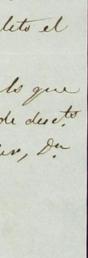 leto el
ls que
de desc.tos
Dn